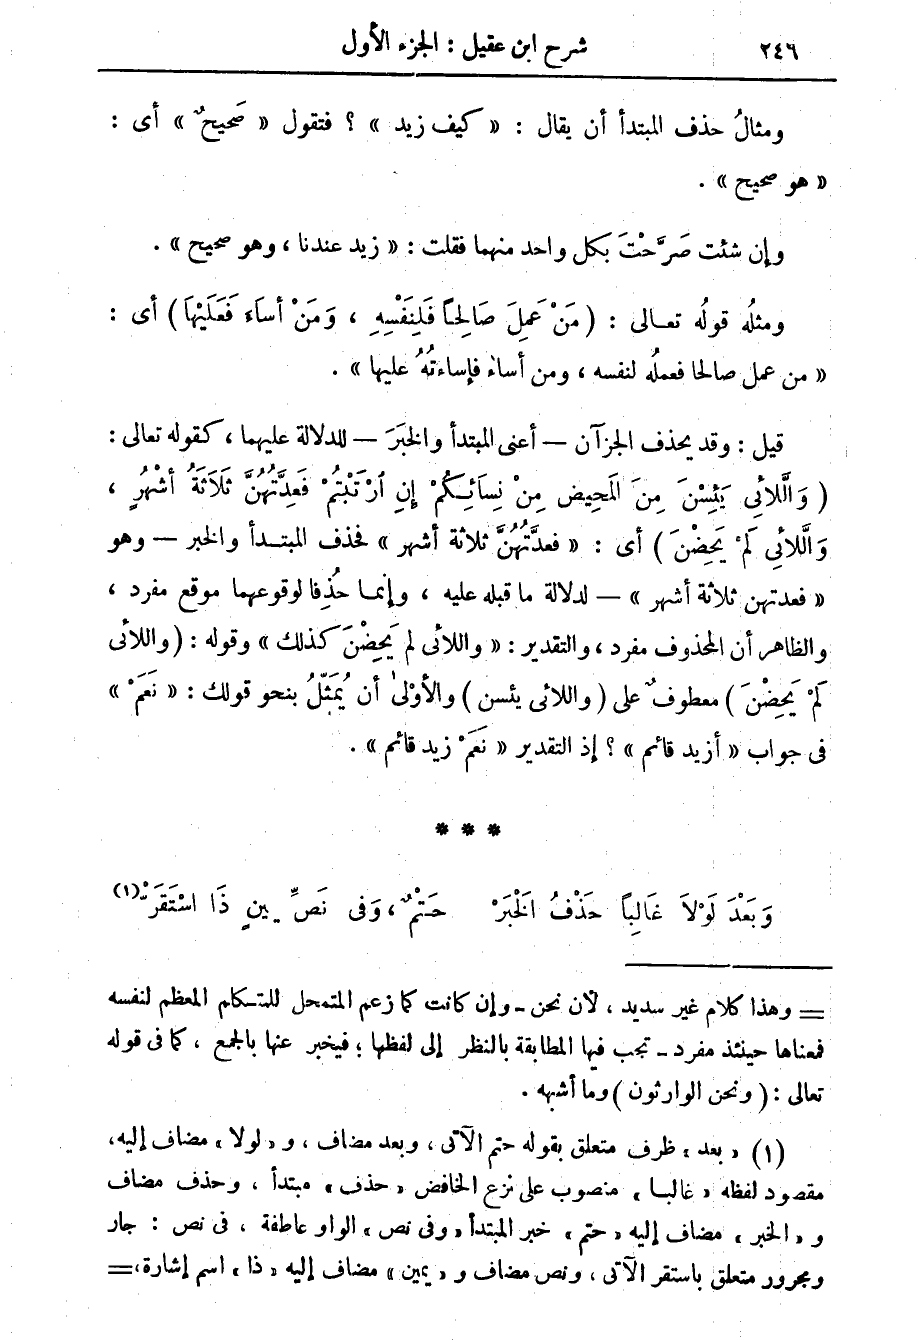 ٢٤٦
شرح ابن عقيل : الجزء الأول
ومثالُ حذف المبتدأ أن يقال : « كيف زيد » ؟ فتقول « صَحيحٌ » أى :
« هو صحيح » .
وإن شئت صَرَّحْتَ بكل واحد منهما فقلت : « زيد عندنا ، وهو صحيح » .
ومثلُه قولُه تعـالى : ( مَنْ عَمِلَ صَالِحًا فَلِنَفْسِهِ ، وَمَنْ أسَاءَ فَعَلَيْهَا ) أى :
« من عمل صالحا فعملُه لنفسه ، ومن أساء فإساءتُهُ عليها » .
قيل : وقد يحذف الجزآن — أعنى المبتدأ والخبَرَ — للدلالة عليهما ، كقوله تعالى :
( وَالَّلائِى يَئِسْنَ مِنَ المَحِيضِ مِنْ نِسَائِـكُمْ إنِ ارْتَبْتُمْ فَعِدَّتُهُنَّ ثَلَاثَةُ أشْهُرٍ ،
وَالَّلائِى لَمْ يَحِضْنَ ) أى : « فعدَّتُهُنَّ ثلاثة أشهر » فحذف المبتـدأ والخبر — وهو
« فعدتهن ثلاثة أشهر » — لدلالة ما قبله عليه ، وإنمـا حُذِفا لوقوعهما موقع مفرد ،
والظاهر أن المحذوف مفرد ، والتقدير : « واللائى لم يَحِضْنَ كذلك » وقوله : ( واللائى
لَمْ يَحِضْنَ ) معطوفٌ على ( واللائى يئسن ) والأوْلىٰ أن يُمَثّلُ بنحو قولك : « نَعَمْ »
فى جواب « أزيد قائم » ؟ إذ التقدير « نَعَمْ زيد قائم » .
* * *
وَبَعْدَ لَوْلاَ غَالِبًا حَذْفُ الْخَبَرْ حَتْمٌ ، وَفى نَصِّ يمينٍ ذَا اسْتَقَرّْ (١)
= وهذا كلام غير سديد ، لأن نحن ــ وإن كانت كما زعم المتمحل للمتـكلم المعظم لنفسه
فمعناها حينئذ مفرد ــ تجب فيها المطابقة بالنظر إلى لفظها ؛ فيخبر عنها بالجمع ، كما فى قوله
تعالى : ( ونحن الوارثون ) وما أشبهه .
(١) « بعد » ظرف متعلق بقوله حتم الآتى ، وبعد مضاف ، و « لولا » مضاف إليه ،
مقصود لفظه « غالبـا » منصوب على نزع الخافض « حذف » مبتدأ ، وحذف مضاف
و « الخبر » مضاف إليه « حتم » خبر المبتدأ « وفى نص » الواو عاطفة ، فى نص : جار
ومجرور متعلق باستقر الآتى ، ونص مضاف و « يمين » مضاف إليه « ذا » اسم إشارة ، =